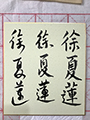 徐夏蓮
徐夏蓮
徐夏莲